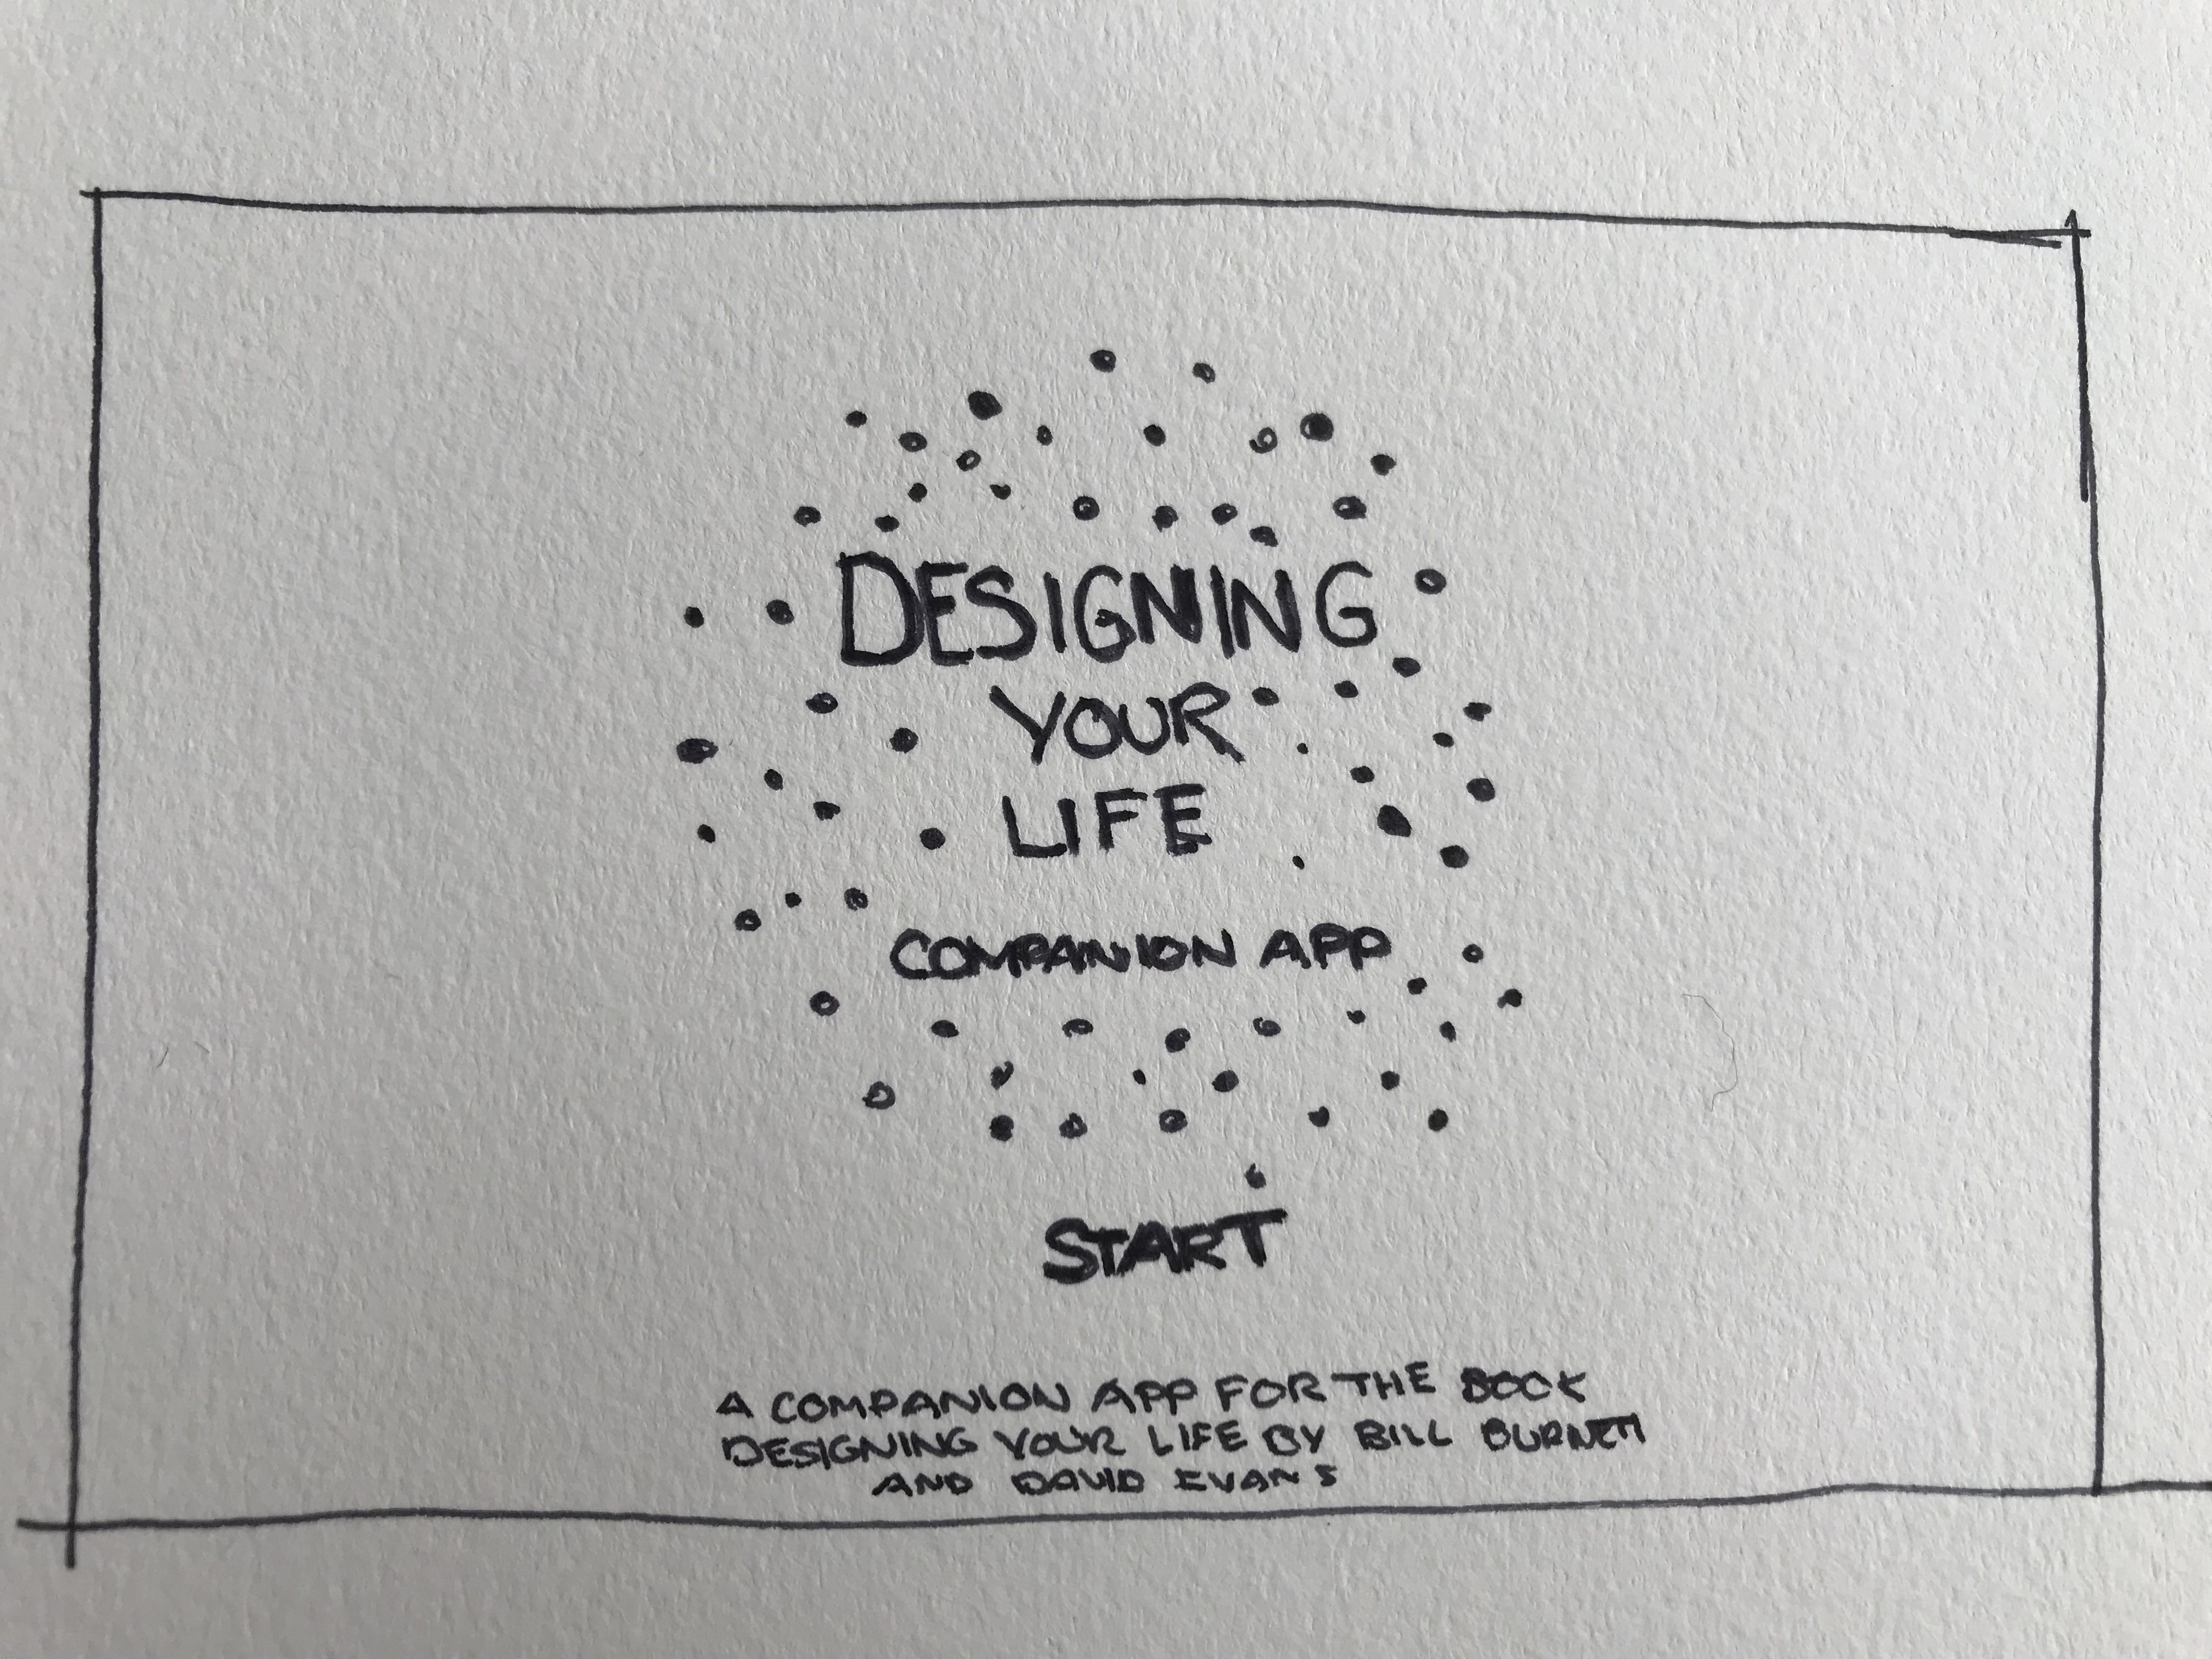 DESIGNING
YOUR
LIFE
COMPANION APP
START
A COMPANION APP FOR THE BOOK
DESIGNING YOUR LIFE BY BILL BURNETT
AND DAVID EVANS